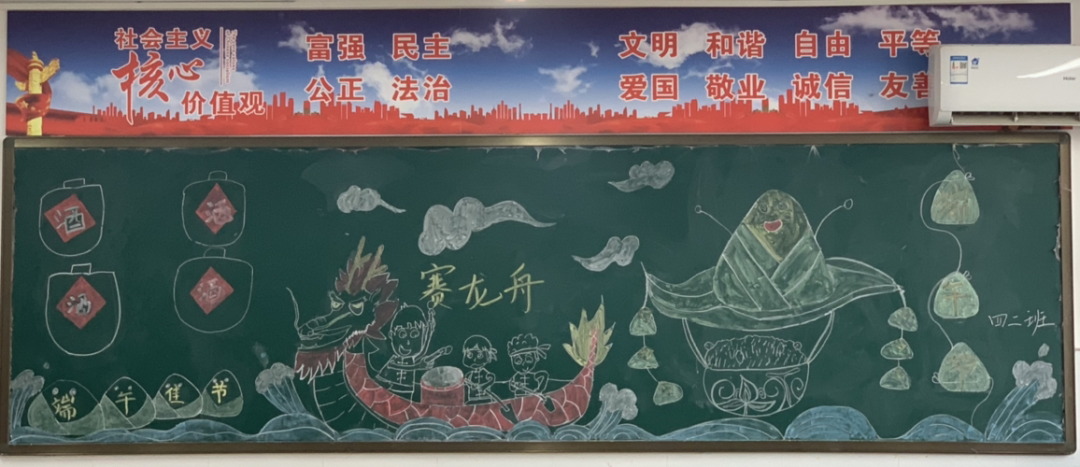 社会主义
核心
价值观
富强 民主
公正 法治
文明 和谐 自由 平等
爱国 敬业 诚信 友善
酒
酒
酒
酒
赛龙舟
四二班
端午隹节
Haier